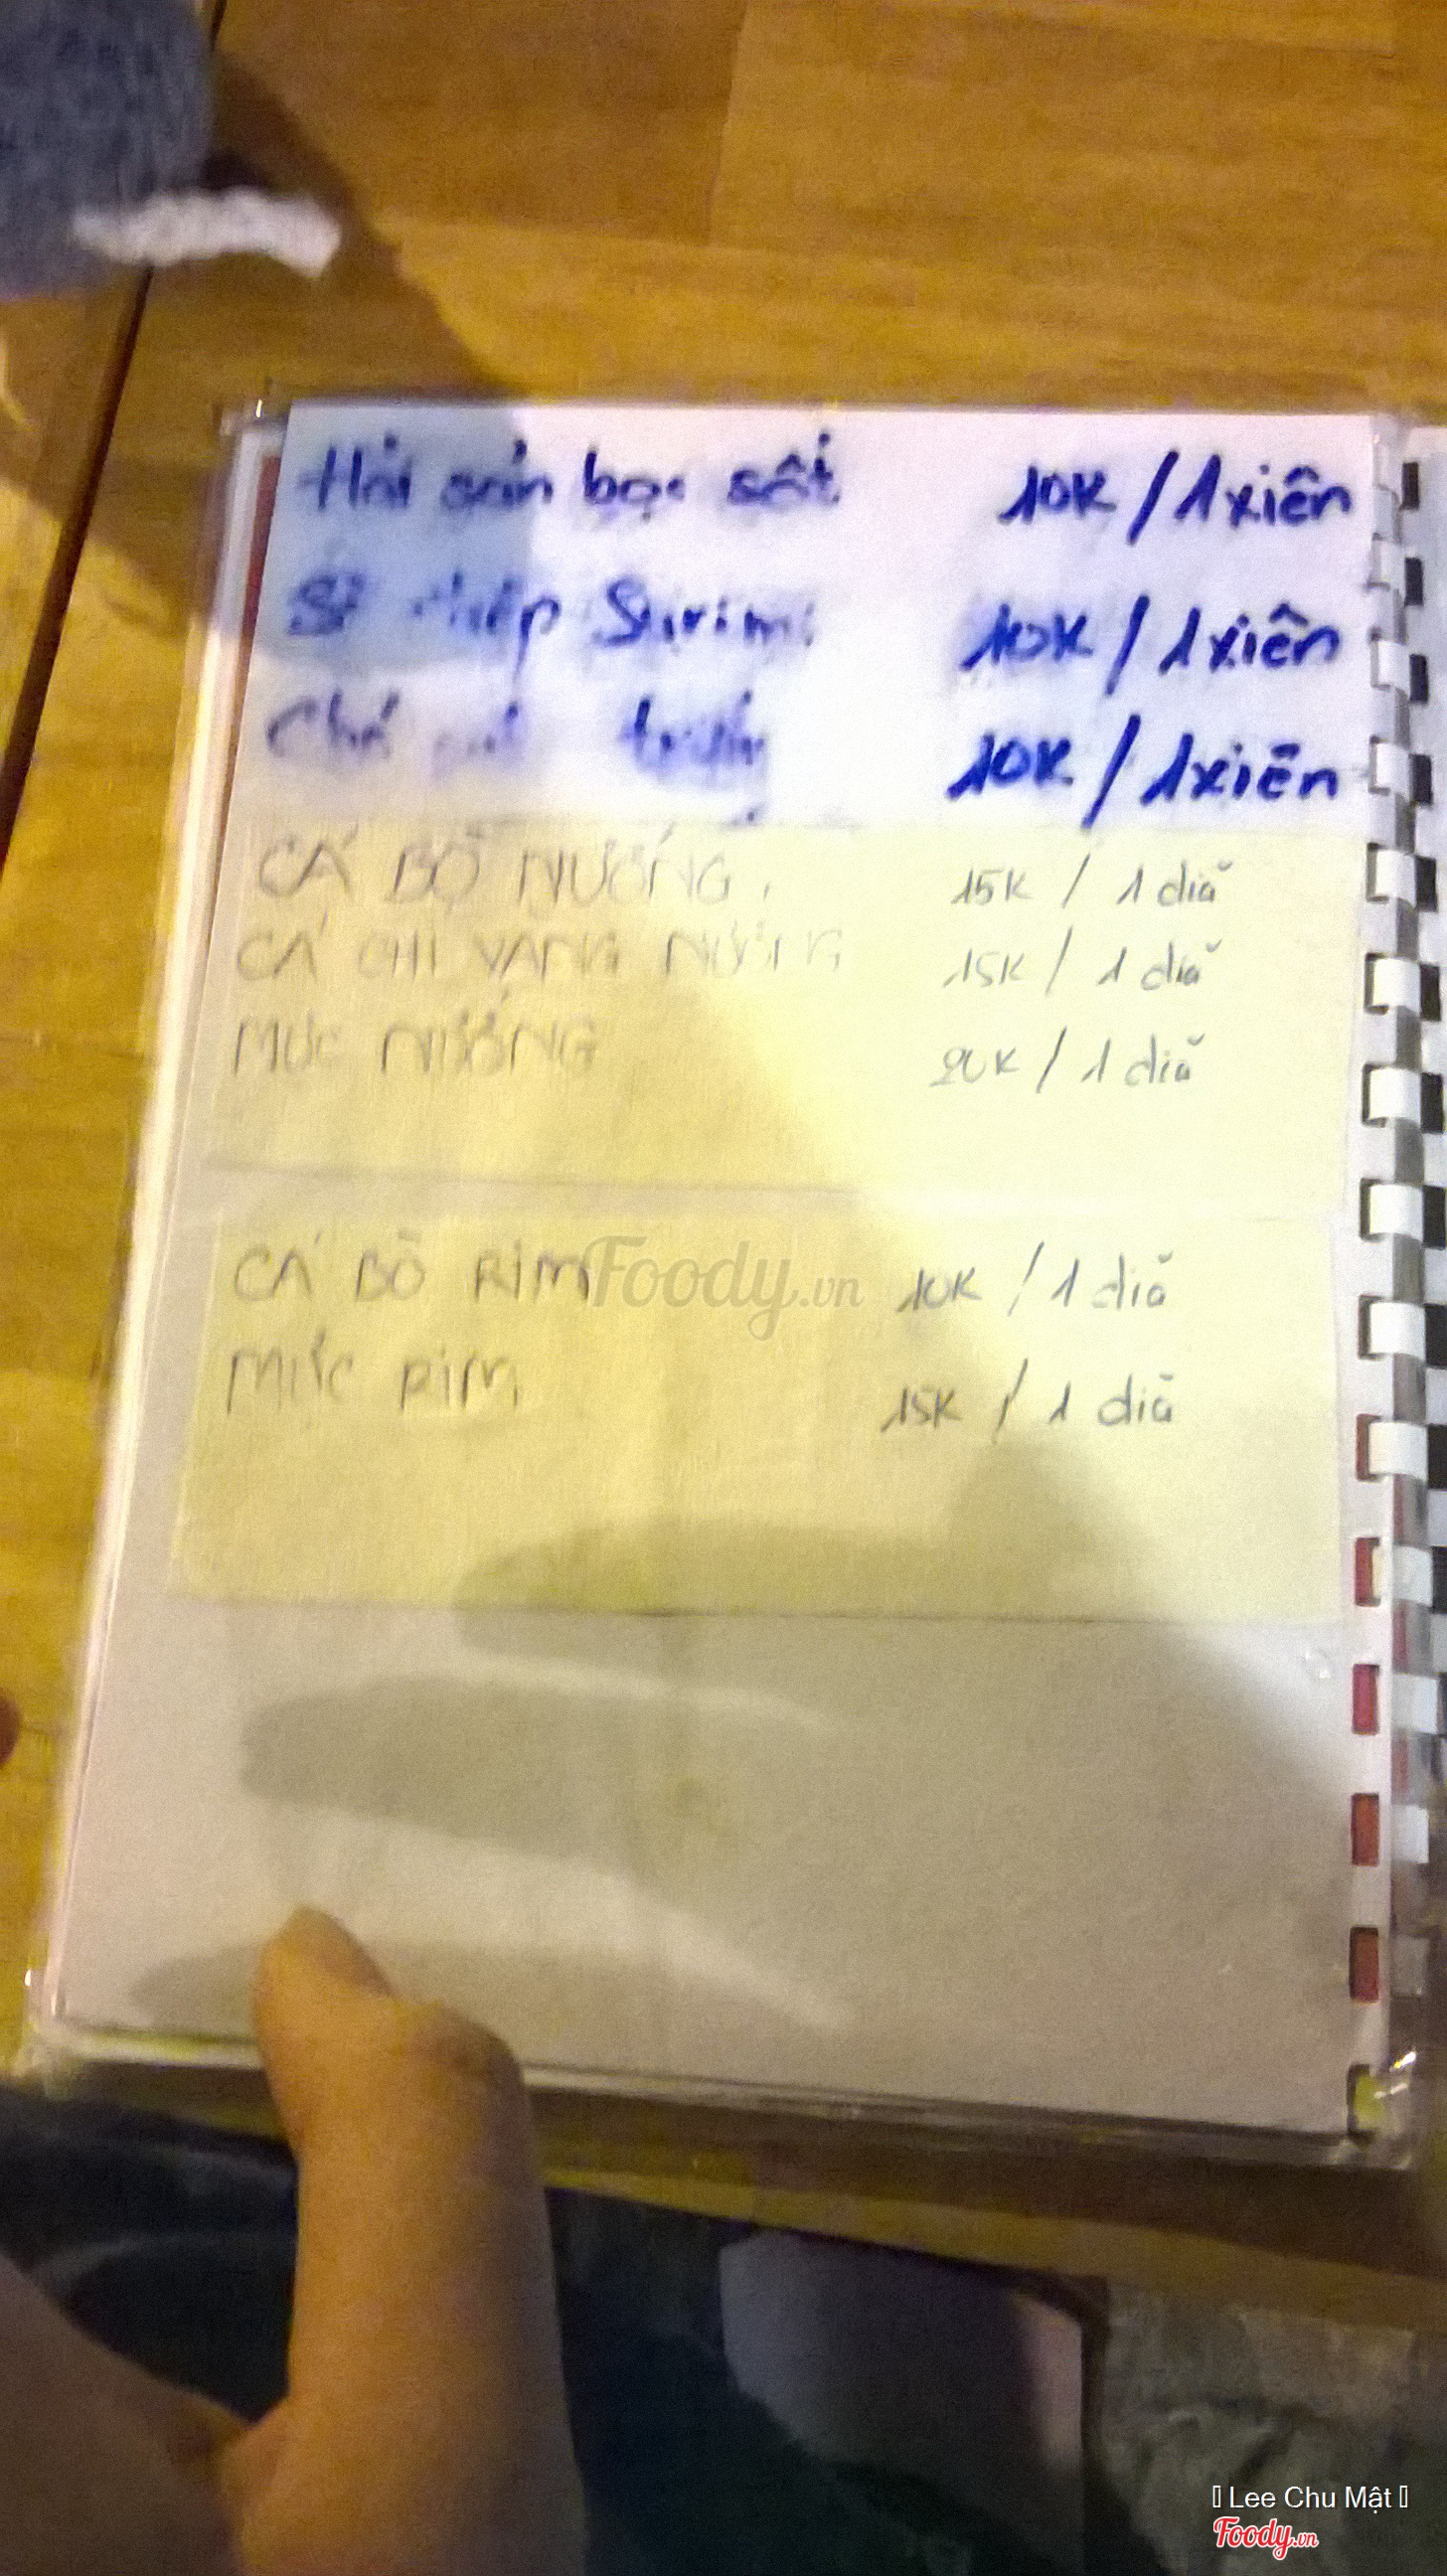 Hải sản bọc sốt 10K / 1 xiên
Surimi 10K / 1 xiên
Chả 10K / 1 xiên
CÁ BÒ NƯỚNG 15K / 1 diă
CÁ CHỈ VÀNG NƯỚNG 15K / 1 diă
MỰC NƯỚNG 20K / 1 diă
CÁ BÒ RIM 10K / 1 diă
MỰC RIM 15K / 1 diã
Foody.vn
Lee Chu Mật
Foody.vn